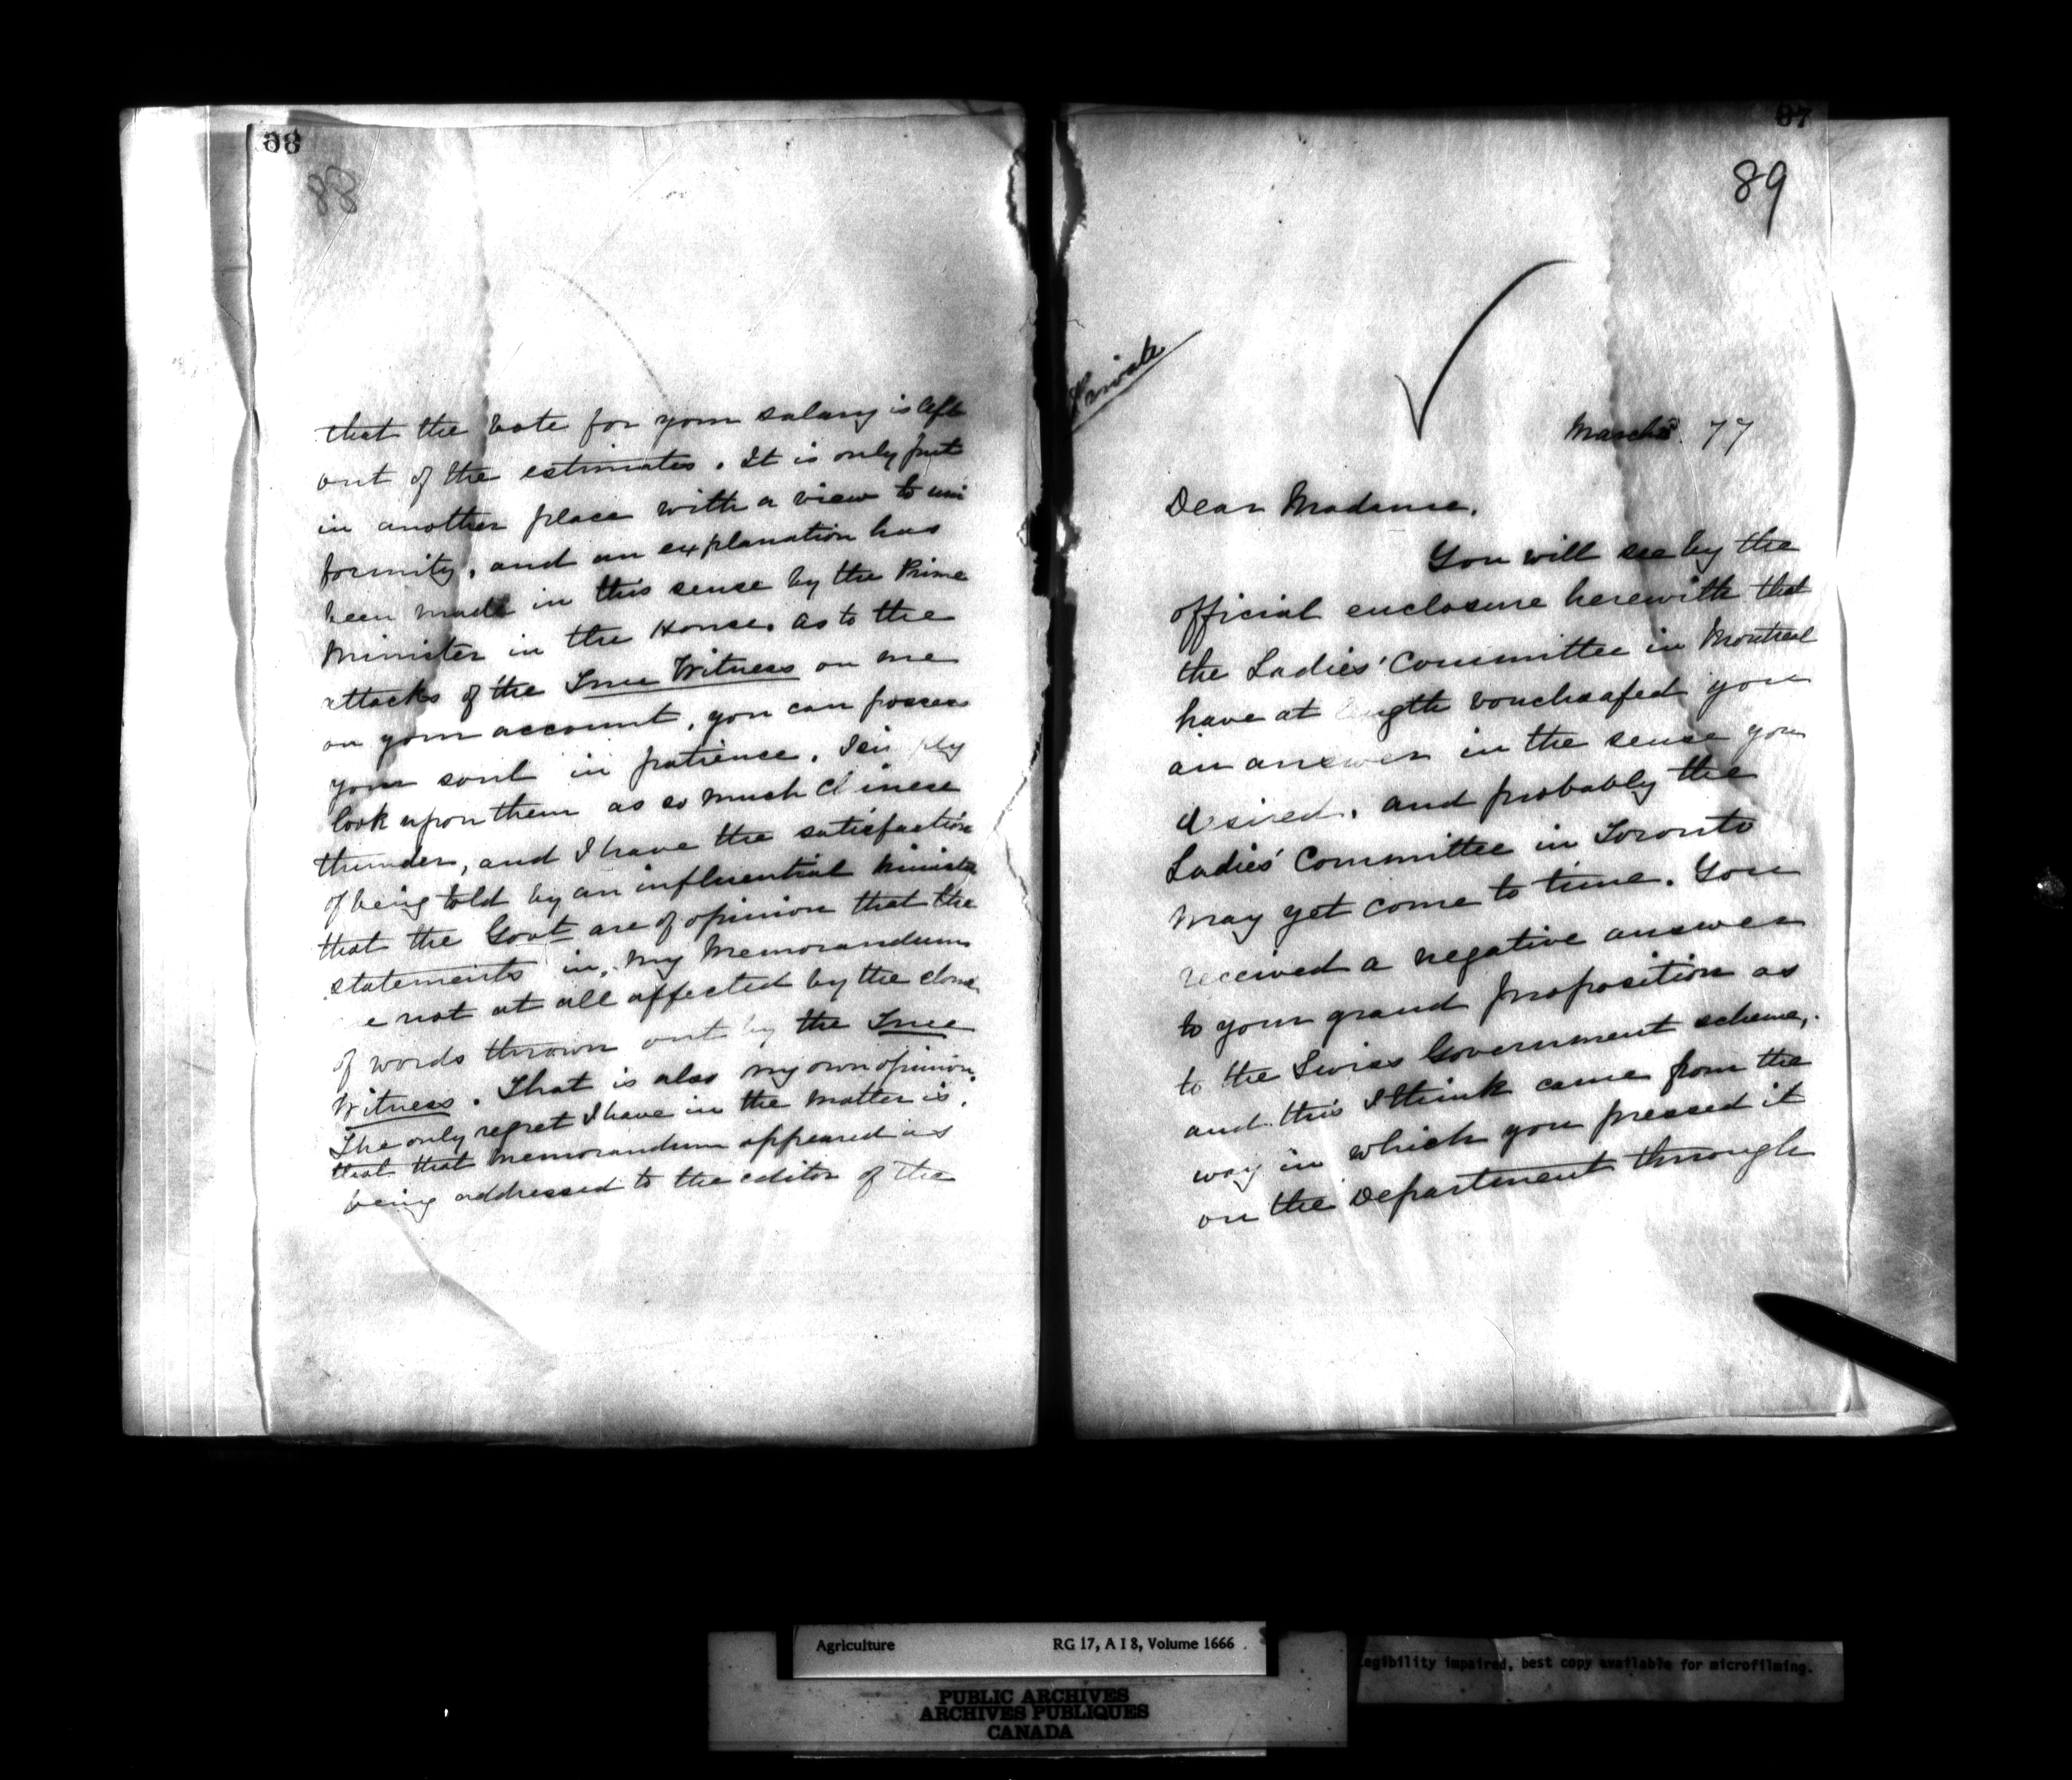 88
88
that the vote for your salary is left
out of the estimates. It is only put
in another place with a view to uni
formity, and an explanation has
been made in this sense by the Prime
Minister in the House. As to the
attacks of the True Witness on me
on your account, you can possess
your soul in patience. I simply
look upon them as so much Chinese
thunder, and I have the satisfaction
of being told by an influential Minister
that the Govt are of opinion that the
statements in my Memorandum
are not at all affected by the cloud
of words thrown out by the True
Witness. That is also my own opinion.
The only regret I have in the matter is,
that that memorandum appeared as
being addressed to the editor of the
87
89
Private
March 77
Dear Madame,
You will see by the
official enclosure herewith that
the Ladies' Committee in Montreal
have at length vouchsafed you
an answer in the sense you
desired, and probably the
Ladies' Committee in Toronto
may yet come to time. You
received a negative answer
to your grand proposition as
to the Swiss Government scheme,
and this I think came from the
way in which you pressed it
on the Department through
Agriculture RG 17, A I 8, Volume 1666
Legibility impaired, best copy available for microfilming.
PUBLIC ARCHIVES
ARCHIVES PUBLIQUES
CANADA